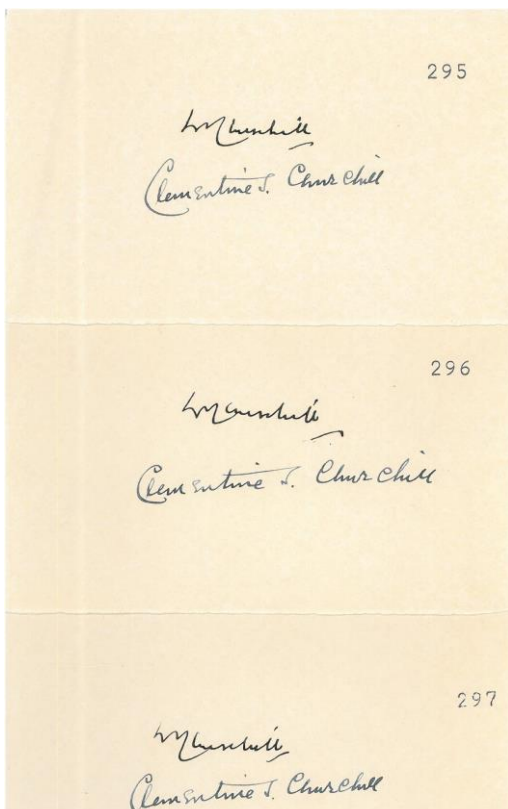 295
W Churchill
Clementine S. Churchill
296
W Churchill
Clementine S. Churchill
297
W Churchill
Clementine S. Churchill